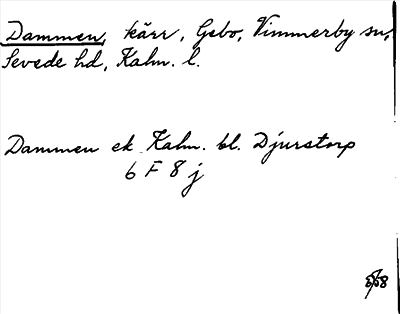 Dammen, kärr, Gebo, Vimmerby sn,
Sevede hd, Kalm. l.
Dammen ek. Kalm. bl. Djurstorp
6 F 8 j